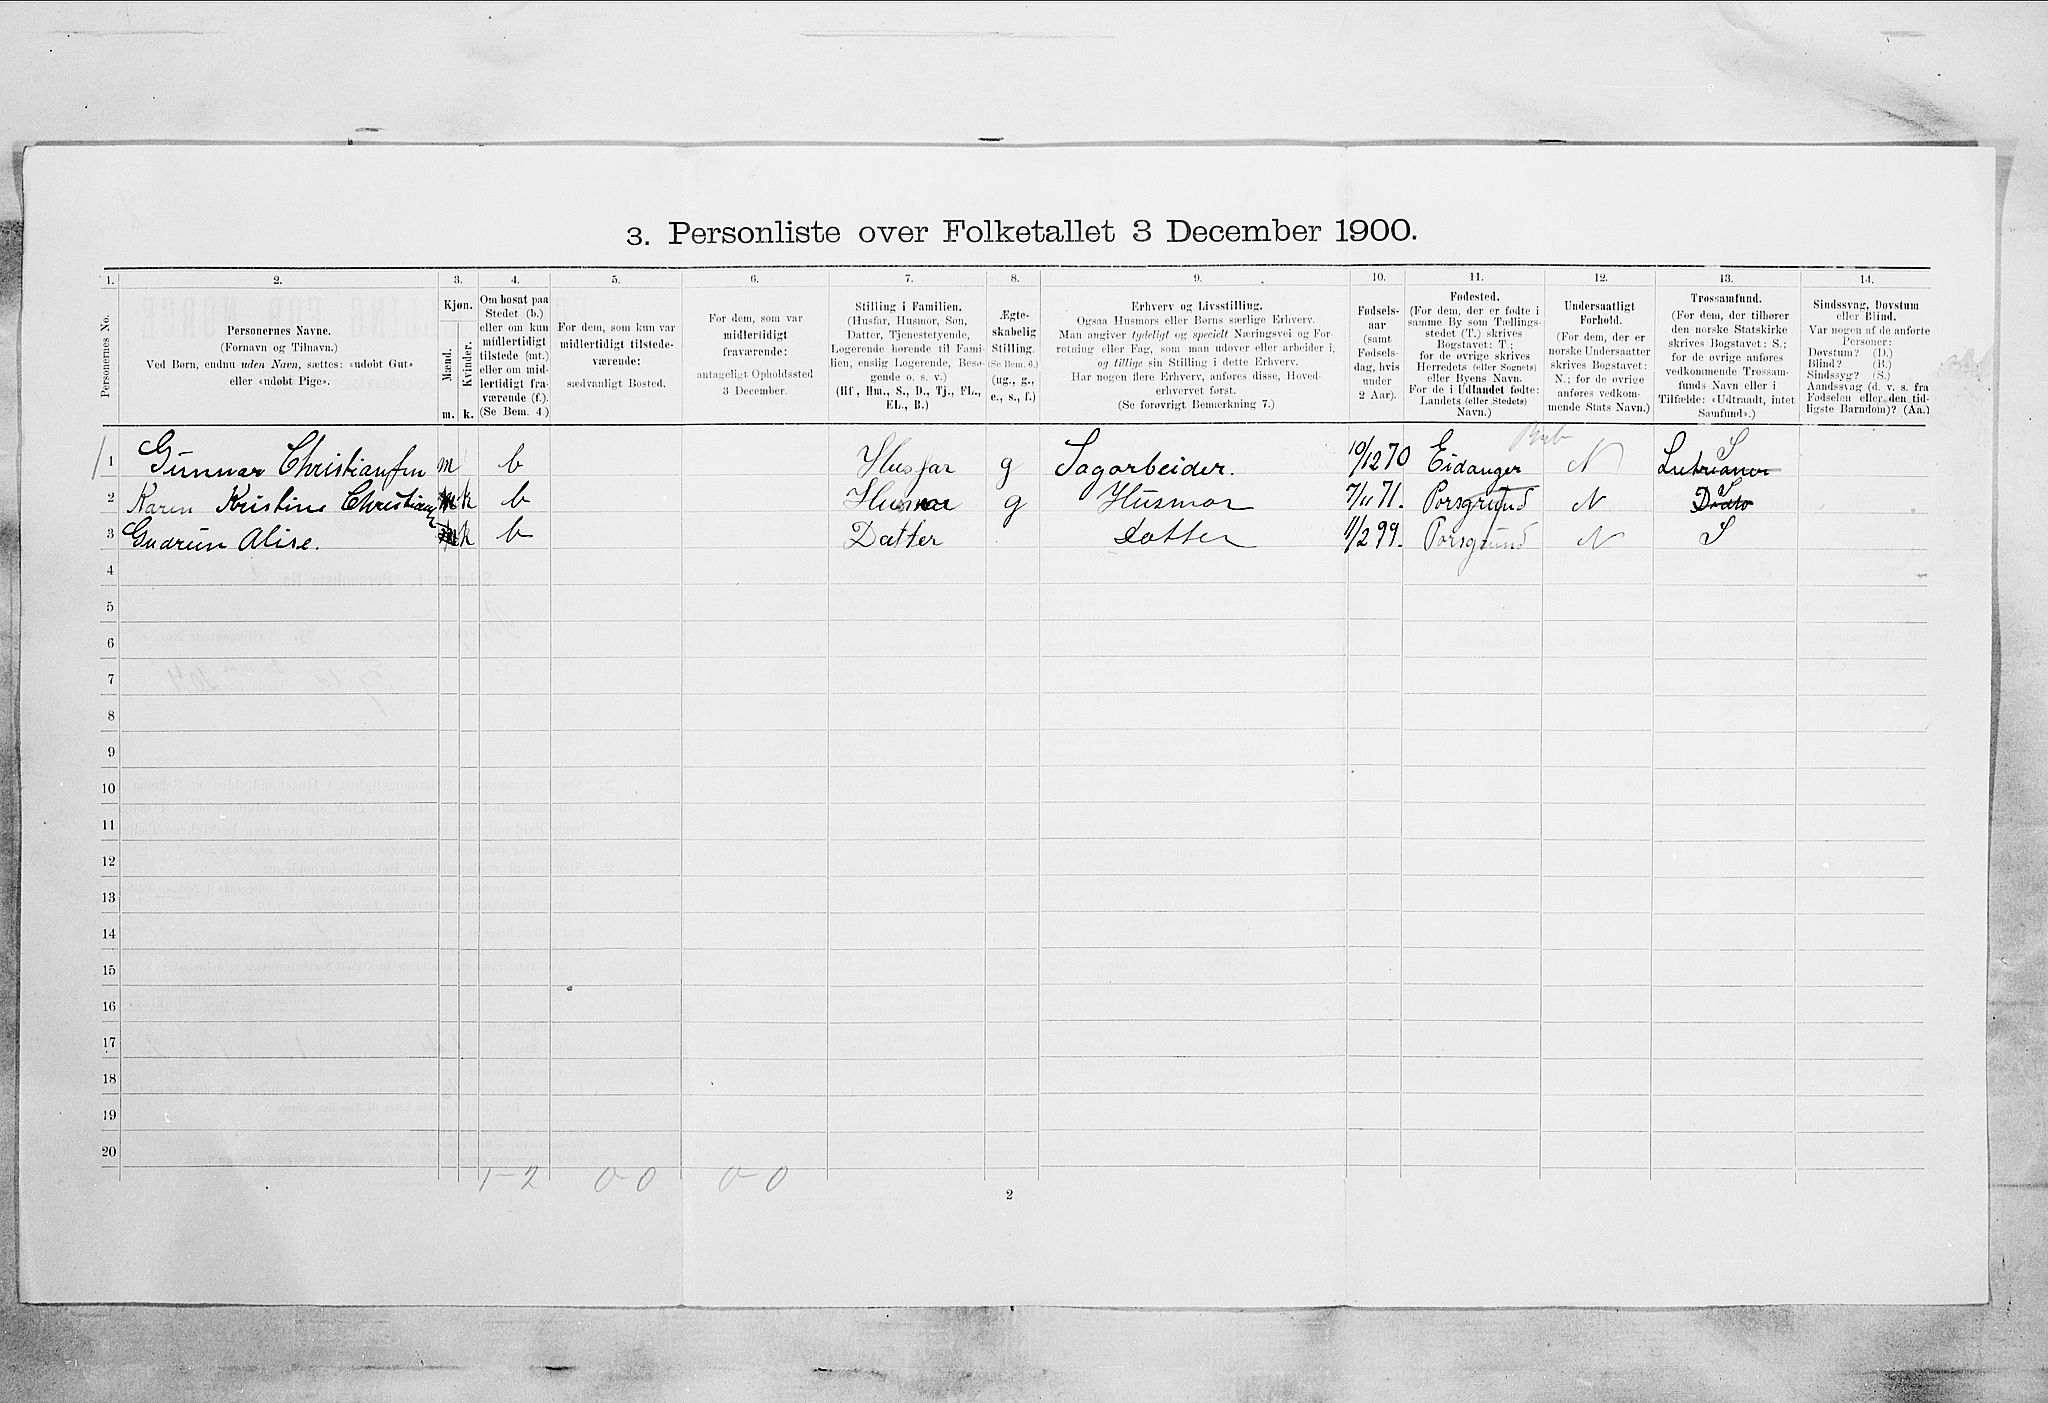 3. Personliste over Folketallet 3 December 1900.
1. 2. 3. 4. 5. 6. 7. 8. 9. 10. 11. 12. 13. 14.
Personernes No.
Personernes Navne.
(Fornavn og Tilnavn.)
Ved Børn, endnu uden Navn, sættes: «udøbt Gut»
eller «udøbt Pige».
Kjøn.
Mænd.
Kvinder.
m. k.
Om bosat paa
Stedet (b.)
eller om kun
midlertidigt
tilstede (mt.)
eller om mid-
lertidigt fra-
værende (f.).
(Se Bem. 4.)
For dem, som kun var
midlertidigt tilstede-
værende:
sædvanligt Bosted.
For dem, som var
midlertidigt
fraværende:
antageligt Opholdssted
3 December.
Stilling i Familien.
(Husfar, Husmor, Søn,
Datter, Tjenestetyende,
Logerende hørende til Fami-
lien, enslig Logerende, Besø-
gende o. s. v.)
(Hf., Hm., S., D., Tj., FL.,
EL., B.)
Ægte-
skabelig
Stilling.
(Se Bem. 6.)
(ug., g.,
e., s., f.)
Erhverv og Livsstilling.
Ogsaa Husmors eller Børns særlige Erhverv.
Man angiver tydeligt og specielt Næringsvei og For-
retning eller Fag, som man udøver eller arbeider i,
og tillige sin Stilling i dette Erhverv.
Har nogen flere Erhverv, anføres disse, Hoved-
erhvervet først.
(Se forøvrigt Bemærkning 7.)
Fødsels-
aar
(samt
Fødsels-
dag, hvis
under
2 Aar).
Fødested.
(For dem, der er fødte i
samme By som Tællings-
stedet (T.) skrives
Bogstavet: T.;
for de øvrige skrives
Herredets (eller Sognets)
eller Byens Navn.
For de i Udlandet fødte:
Landets (eller Stedets)
Navn.)
Undersaatligt
Forhold.
(For dem, der er
norske Undersaatter
skrives Bogstavet:
N.; for de øvrige
anføres vedkom-
mende Stats Navn.)
Trossamfund.
(For dem, der tilhører
den norske Statskirke
skrives Bogstavet: S.;
for de øvrige anføres
vedkommende Trossam-
funds Navn eller i
Tilfælde: «Udtraadt, intet
Samfund».)
Sindssvag, Døvstum
eller Blind.
Var nogen af de anførte
Personer:
Døvstum? (D.)
Blind? (B.)
Sindssyg? (S.)
Aandssvag (d. v. s. fra
Fødselen eller den tid-
ligste Barndom)? (Aa.)
1 Gunnar Christiansen m b Husfar g Sagarbeider. 10/12 70 Eidanger N Lutrianer S
2 Karen Kristine Christians k b Husmor g Husmor 7/11 71. Porsgrund N Dido S
3 Gudrun Alise. k b Datter Datter 11/2 99. Porsgrund N S
4
5
6
7
8
9
10
11
12
13
14
15
16
17
18
19
20
1-2 0-0 0-0
2